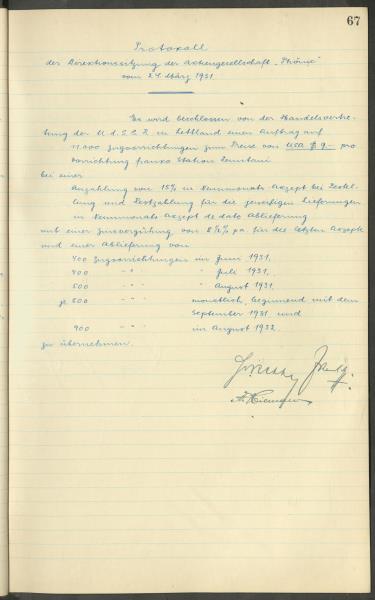 67
Protokoll
der Direktionssitzung der Aktiengesellschaft „Phönix"
vom 24. März 1931
Es wird beschlossen von der Handelsvertre-
tung der U.d.S.S.R. in Lettland einen Auftrag auf
11.000 Zugvorrichtungen zum Preise von USA $ 9.- pro
Vorrichtung franko Station
bei einer
Anzahlung von 15% in Akzept bei Bestel-
lung und Restzahlung für die jeweiligen Lieferungen
in Akzept de dato Ablieferung
mit einer Zinsvergütung von 8½% pa. für die letzten Akzepte
und einer Ablieferung von
400 Zugvorrichtungen im Juni 1931,
400 -"- " Juli 1931,
500 -"- " August 1931,
je 800 -"- monatlich, beginnend mit dem
September 1931 und
900 -"- im August 1932
zu übernehmen.